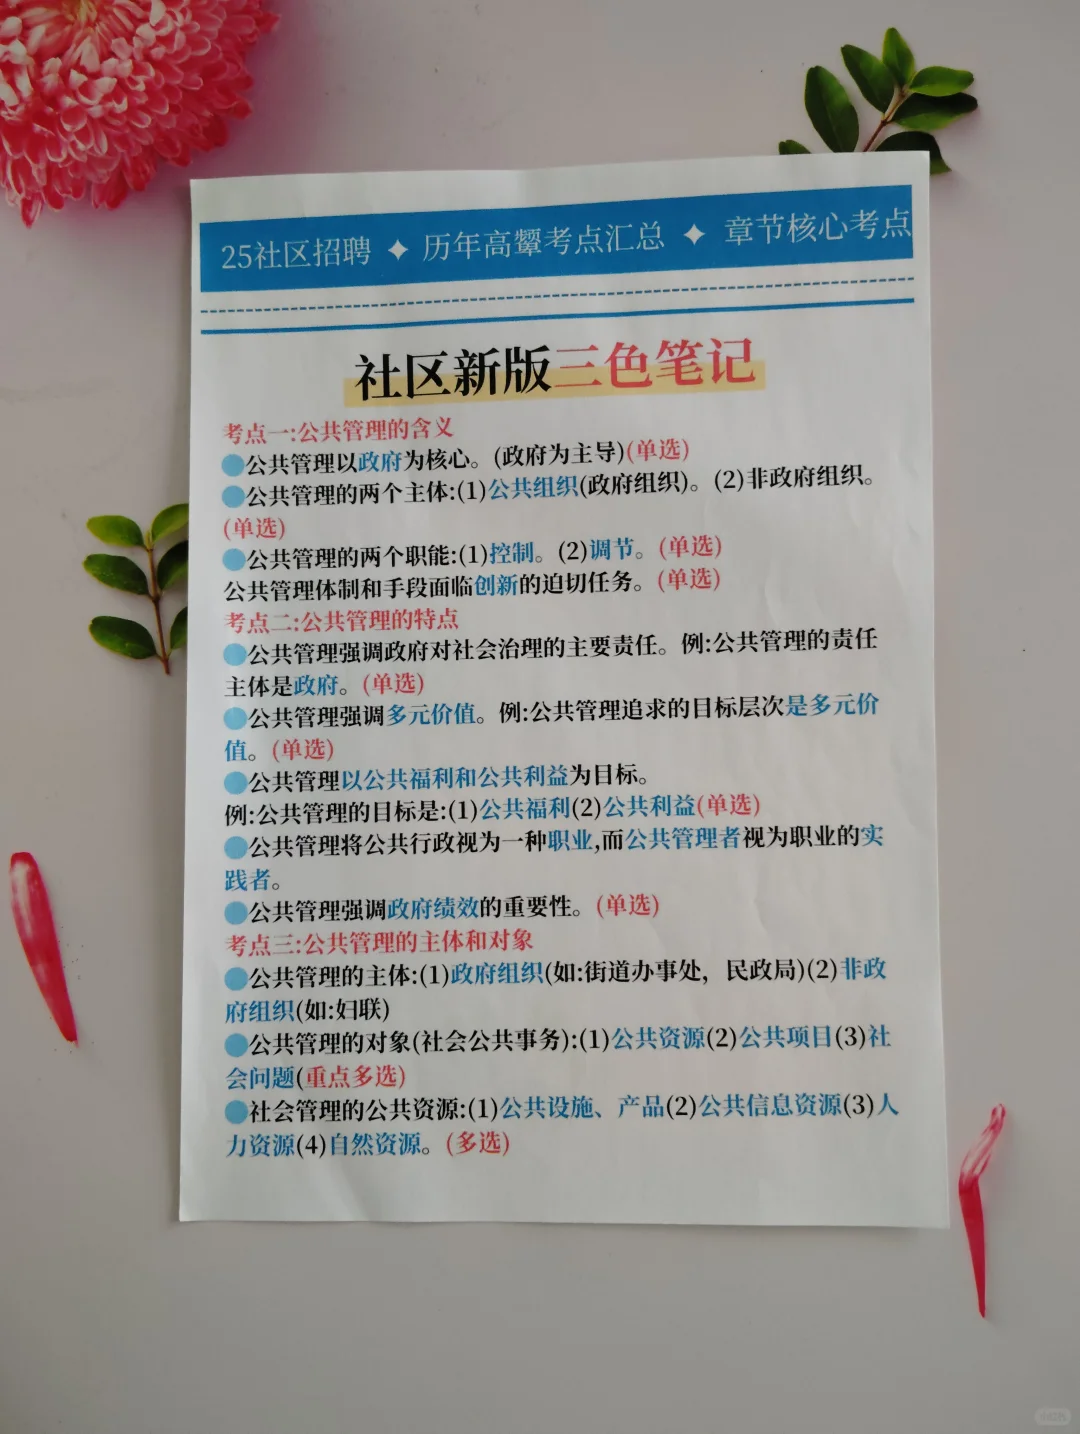 25社区招聘 ✦ 历年高颦考点汇总 ✦ 章节核心考点
社区新版三色笔记
考点一:公共管理的含义
●公共管理以政府为核心。(政府为主导)(单选)
●公共管理的两个主体:(1)公共组织(政府组织)。(2)非政府组织。
(单选)
●公共管理的两个职能:(1)控制。(2)调节。(单选)
公共管理体制和手段面临创新的迫切任务。(单选)
考点二:公共管理的特点
●公共管理强调政府对社会治理的主要责任。例:公共管理的责任
主体是政府。(单选)
●公共管理强调多元价值。例:公共管理追求的目标层次是多元价
值。(单选)
●公共管理以公共福利和公共利益为目标。
例:公共管理的目标是:(1)公共福利(2)公共利益(单选)
●公共管理将公共行政视为一种职业,而公共管理者视为职业的实
践者。
●公共管理强调政府绩效的重要性。(单选)
考点三:公共管理的主体和对象
●公共管理的主体:(1)政府组织(如:街道办事处，民政局)(2)非政
府组织(如:妇联)
●公共管理的对象(社会公共事务):(1)公共资源(2)公共项目(3)社
会问题(重点多选)
●社会管理的公共资源:(1)公共设施、产品(2)公共信息资源(3)人
力资源(4)自然资源。(多选)